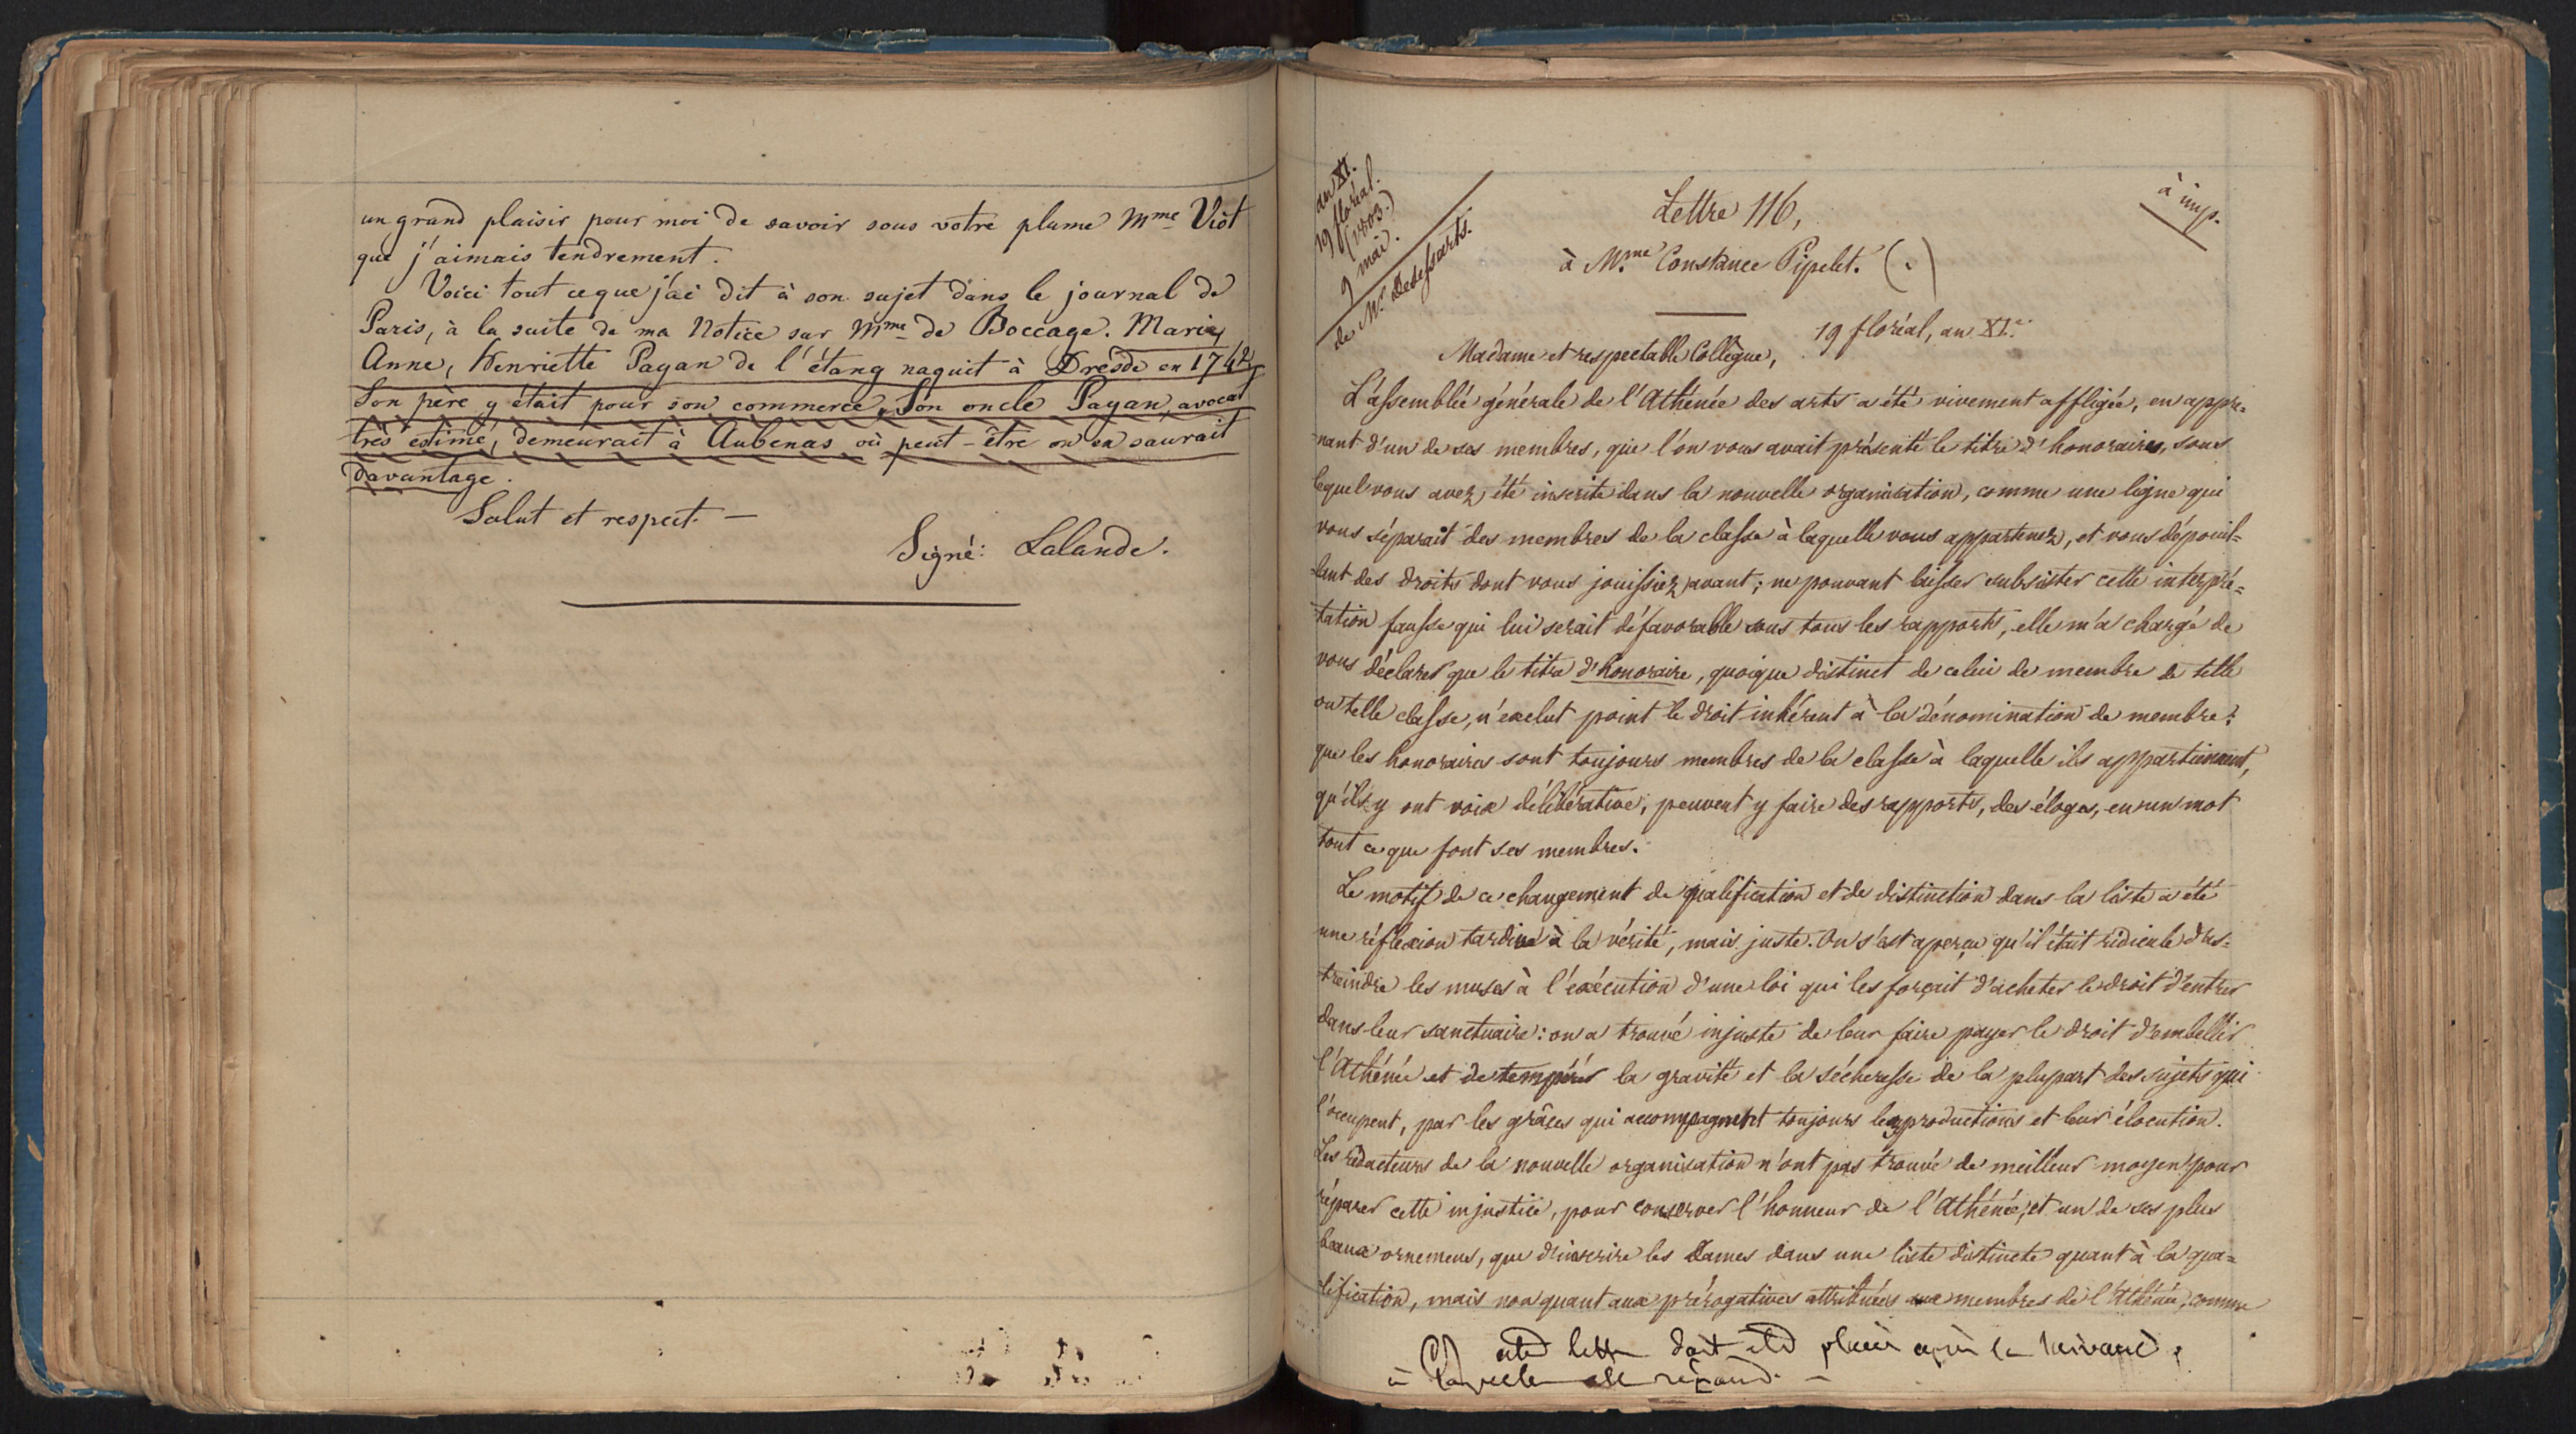 un grand plaisir pour moi de savoir sous votre plume Mme Viot
que j'aimais tendrement.
Voici tout ce que j'ai dit à son sujet dans le journal de
Paris, à la suite de ma Notice sur Mme de Boccage. Marie,
Anne, Henriette Payan de l'étang naquit à Dresde en 1742,
Son père y était pour son commerce. Son oncle Payan, avocat
très estimé, demeurait à Aubenas où peut-être on en saurait
davantage.
Salut et respect. —
Signé: Lalande.
an XI.
19 floréal.
(1803.)
9 mai.
de Mr. Desessarts.
à imp.
Lettre 116,
à Mme Constance Pipelet. (.)
19 floréal, an XI.e
Madame et respectable Collègue,
L'assemblée générale de l'Athénée des arts a été vivement affligée, en appre=
nant d'un de ses membres, que l'on vous avait présenté le titre d'honoraires, sous
lequel vous avez été inscrite dans la nouvelle organisation, comme une ligne qui
vous séparait des membres de la classe à laquelle vous appartenez, et vous dépouil=
lant des droits dont vous jouissiez avant; ne pouvant laisser subsister cette interpré=
tation fausse qui lui serait défavorable sous tous les rapports, elle m'a chargé de
vous déclarer que le titre d'honoraire, quoique distinct de celui de membre de telle
ou telle classe, n'exclut point le droit inhérent à la dénomination de membre;
que les honoraires sont toujours membres de la classe à laquelle ils appartiennent,
qu'ils y ont voix délibérative, peuvent y faire des rapports, des éloges, en un mot
tout ce que font ses membres.
Le motif de ce changement de qualification et de distinction dans la liste a été
une réflexion tardive à la vérité, mais juste. On s'est aperçu qu'il était ridicule d'as=
treindre les muses à l'exécution d'une loi qui les forçait d'acheter le droit d'entrer
dans leur sanctuaire: on a trouvé injuste de leur faire payer le droit d'embellir
l'Athénée et de tempérer la gravité et la sécheresse de la plupart des sujets qui
l'occupent, par les grâces qui accompagnent toujours les productions et leur élocution.
Les rédacteurs de la nouvelle organisation n'ont pas trouvé de meilleur moyen pour
réparer cette injustice, pour conserver l'honneur de l'Athénée, et un de ses plus
beaux ornemens, que d'inscrire les Dames dans une liste distincte quant à la qua=
lification, mais non quant aux prérogatives attribuées aux membres de l'Athénée, comme
(.) cette lettre doit être placée après la suivante,
à laquelle elle répond. —